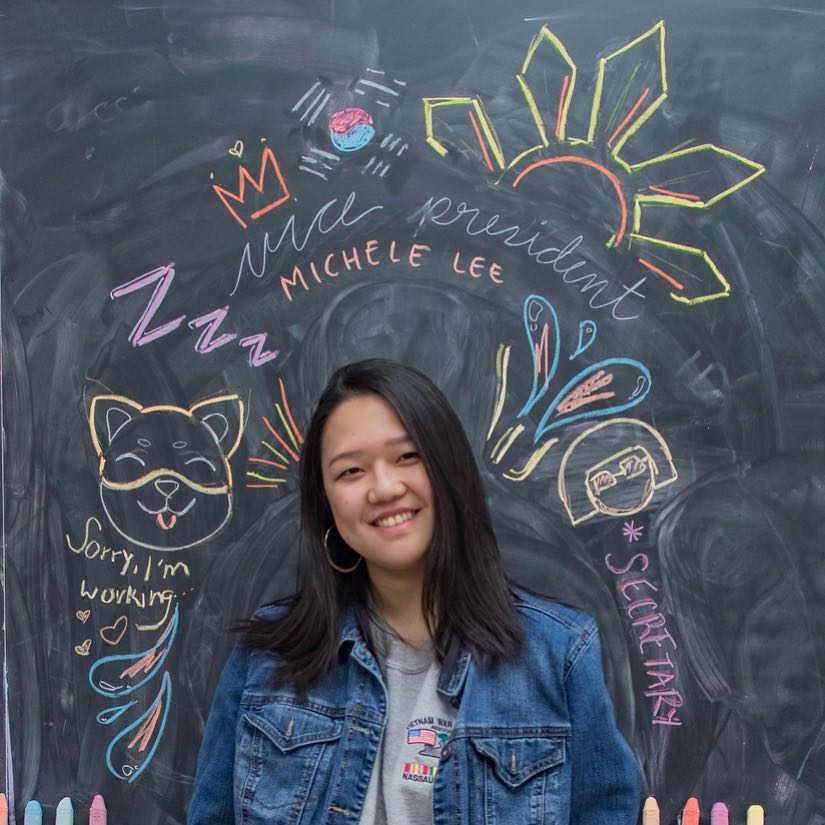 vice president
MICHELE LEE
ZZZ
Sorry, I'm
working...
*SECRETARY
VIETNAM WAR
NASSAU